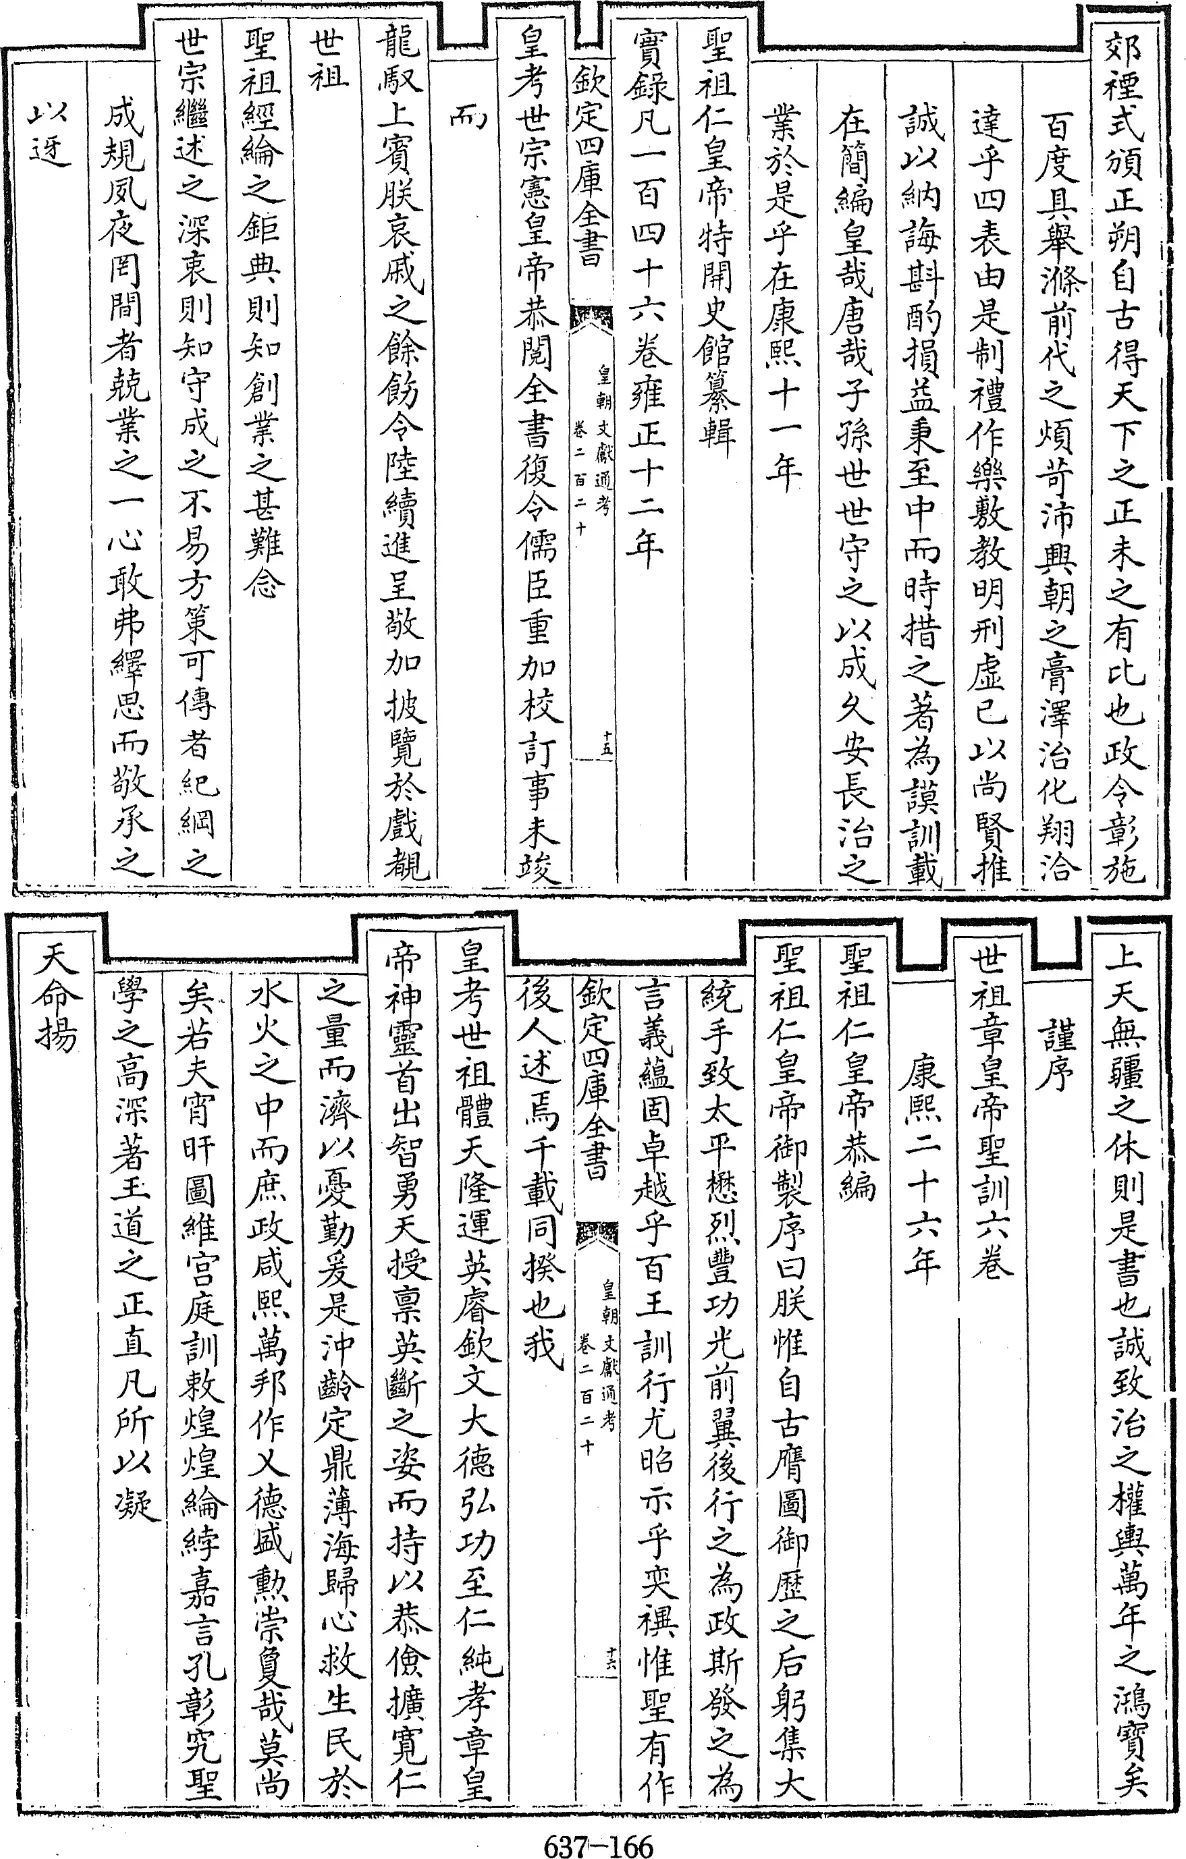 郊禋式頒正朔自古得天下之正未之有比也政令彰施
百度具舉滌前代之煩苛沛興朝之膏澤治化翔洽
達乎四表由是制禮作樂敷教明刑虛已以尚賢推
誠以納誨斟酌損益秉至中而時措之著為謨訓載
在簡編皇哉唐哉子孫世世守之以成久安長治之
業於是乎在康熙十一年
聖祖仁皇帝特開史館纂輯
實錄凡一百四十六卷雍正十二年
欽定四庫全書
皇朝文獻通考
卷二百二十
十五
皇考世宗憲皇帝恭閱全書復令儒臣重加校訂事未竣
而
龍馭上賓朕哀戚之餘飭令陸續進呈敬加披覽於戲覩
世祖
聖祖經綸之鉅典則知創業之甚難念
世宗繼述之深衷則知守成之不易方策可傳者紀綱之
成規夙夜罔間者兢業之一心敢弗繹思而敬承之
以迓
上天無疆之休則是書也誠致治之權輿萬年之鴻寶矣
謹序
世祖章皇帝聖訓六卷
康熙二十六年
聖祖仁皇帝恭編
聖祖仁皇帝御製序曰朕惟自古膺圖御歷之后躬集大
統手致太平懋烈豐功光前翼後行之為政斯發之為
言義蘊固卓越乎百王訓行尤昭示乎奕禩惟聖有作
欽定四庫全書
皇朝文獻通考
卷二百二十
十六
後人述焉千載同揆也我
皇考世祖體天隆運英睿欽文大德弘功至仁純孝章皇
帝神靈首出智勇天授禀英斷之姿而持以恭儉擴寬仁
之量而濟以憂勤爰是沖齡定鼎薄海歸心救生民於
水火之中而庶政咸熙萬邦作乂德盛勲崇敻哉莫尚
矣若夫宵旰圖維宫庭訓敕煌煌綸綍嘉言孔彰究聖
學之高深著王道之正直凡所以凝
天命揚
637-166